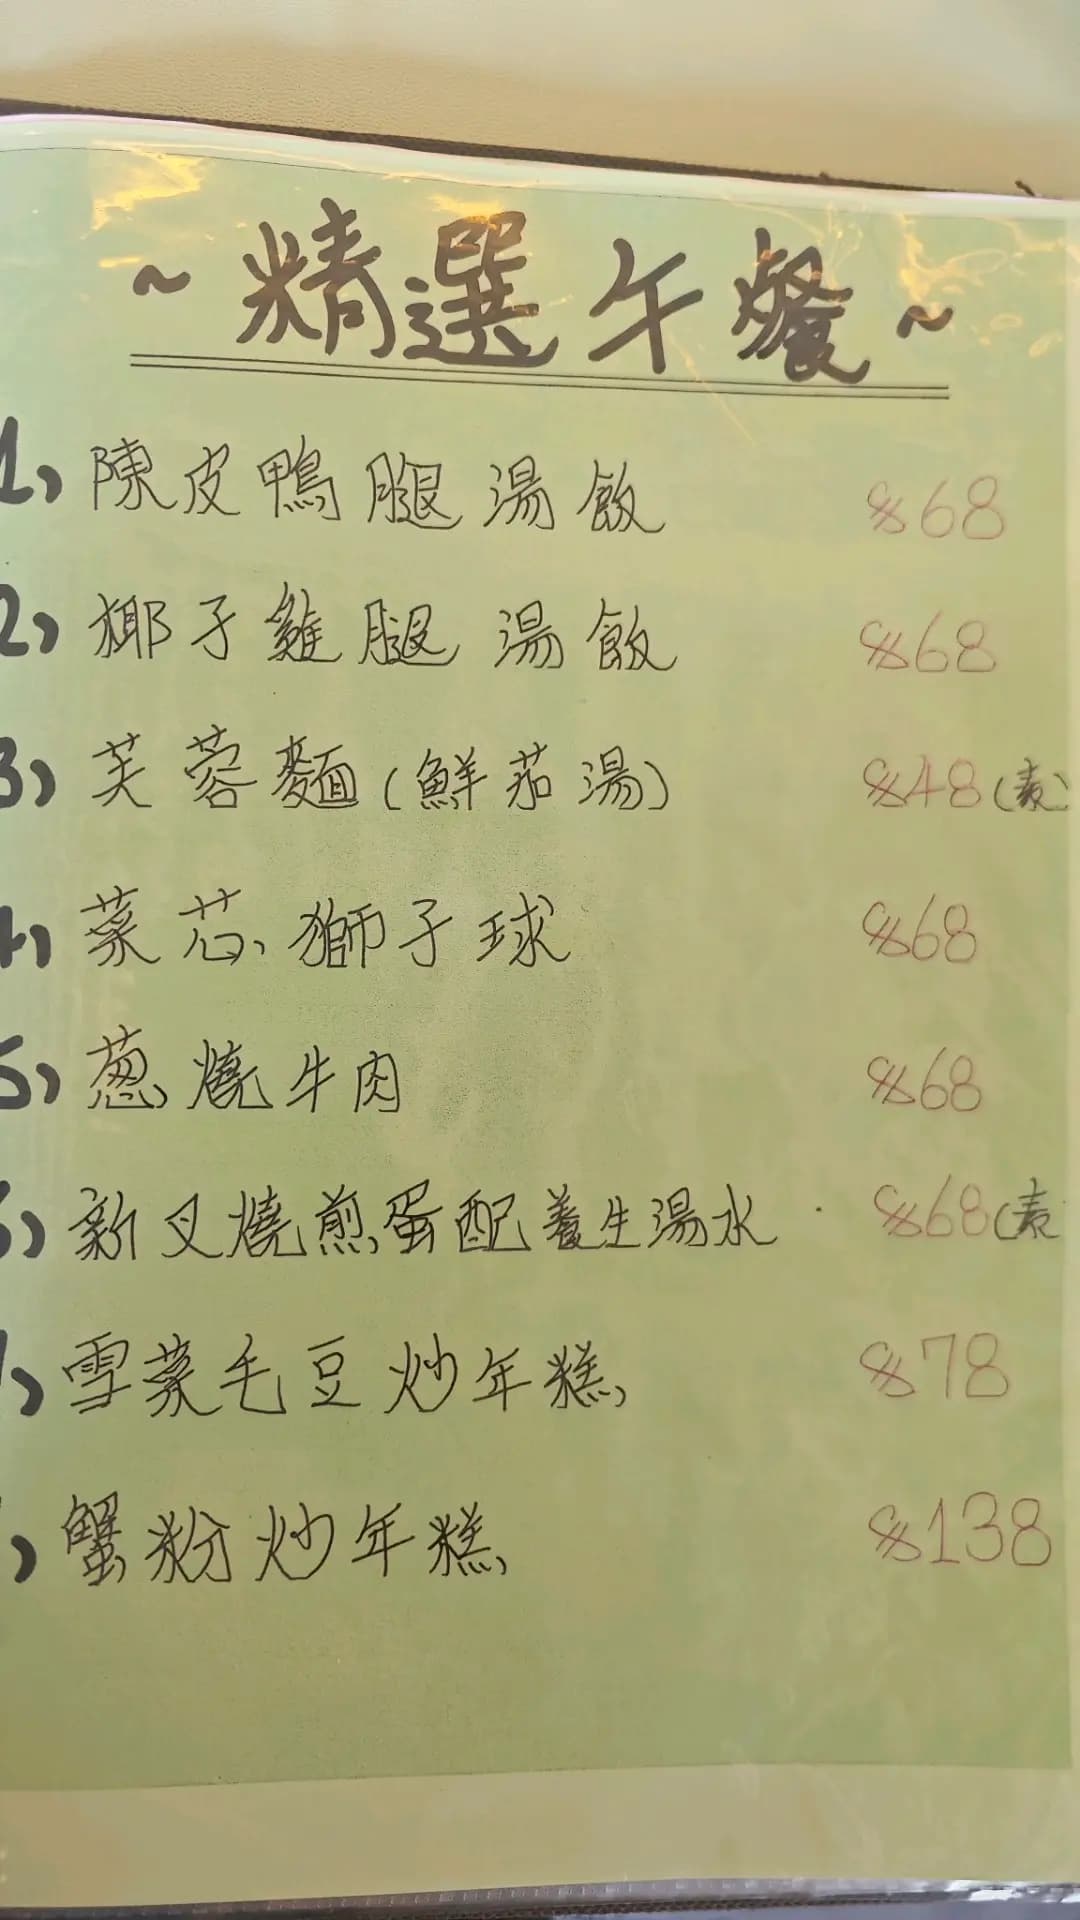 ~精選午餐~
1, 陳皮鴨腿湯飯 $68
2, 椰子雞腿湯飯 $68
3, 芙蓉麵(鮮茄湯) $48(素)
4, 菜芯獅子球 $68
5, 葱燒牛肉 $68
新叉燒煎蛋配養生湯水 $68(素
雪菜毛豆炒年糕 $78
蟹粉炒年糕 $138